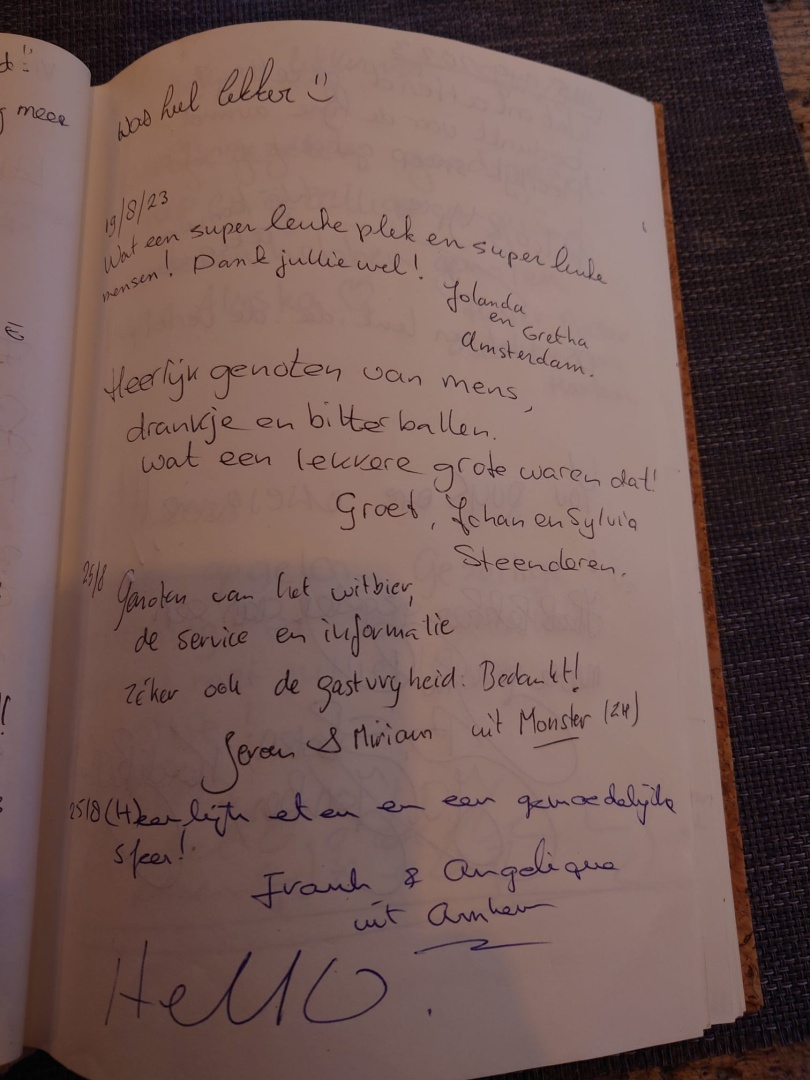 meer
was heel lekker :)
19/8/23
Wat een super leuke plek en super leuke
mensen! Dank jullie wel!
Jolanda
en Gretha
Amsterdam.
Heerlijk genoten van mens,
drankje en bitterballen.
wat een lekkere grote waren dat!
Groet, Johan en Sylvia
Steenderen.
25/8 Genoten van het witbier,
de service en informatie
zéker ook de gastvryheid. Bedankt!
Jeroen & Miriam uit Monster (ZH)
25/8 (H)eerlijk eten en een gemoedelijke
sfeer!
Frank & Angelique
uit Arnhem
Hello.